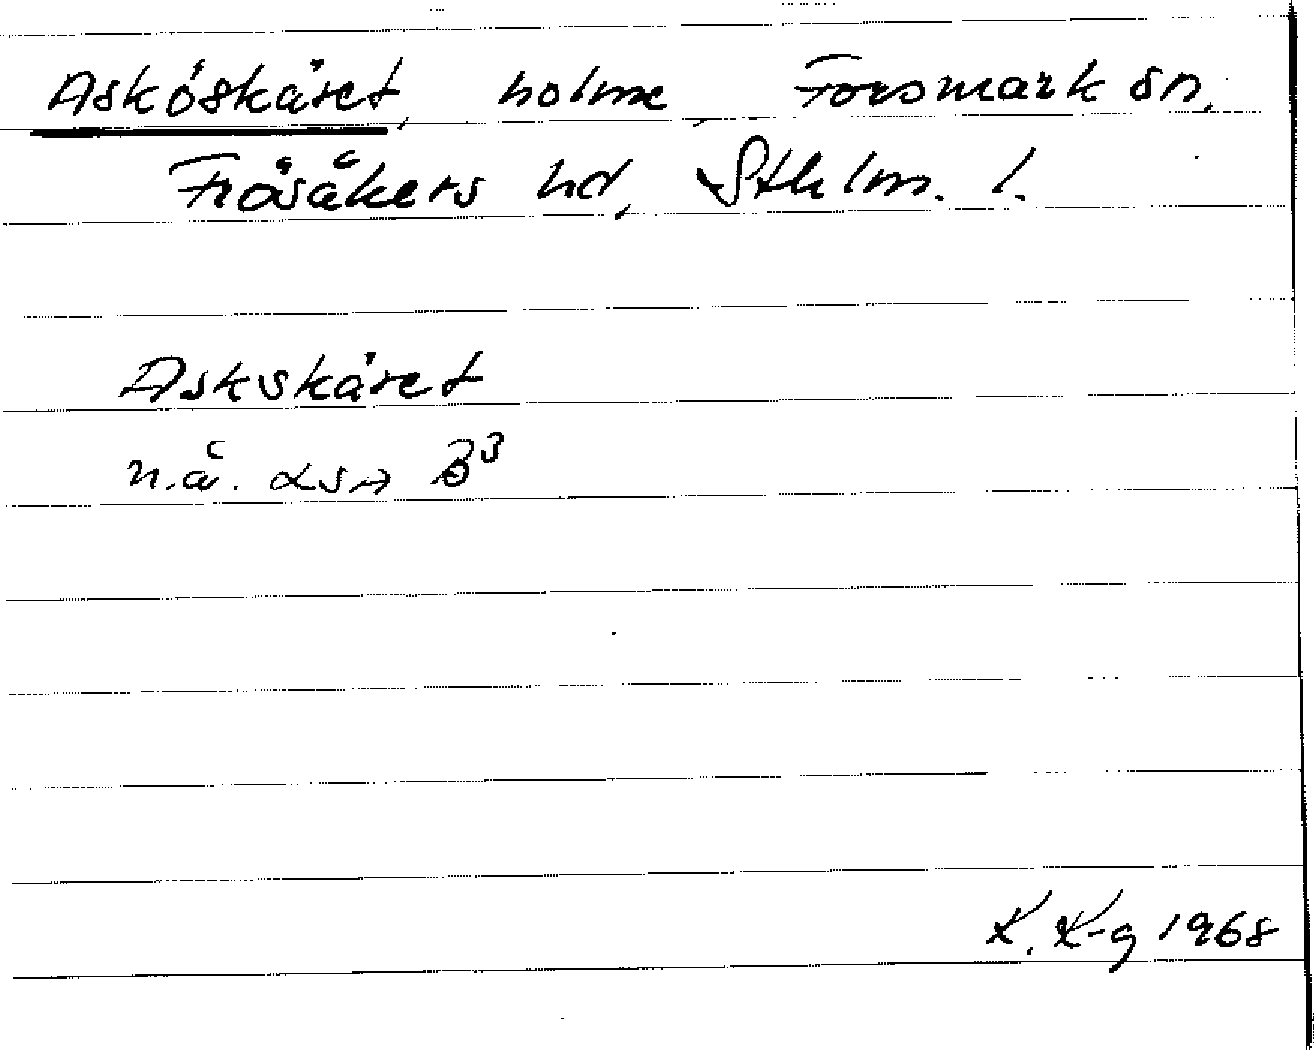 Asköskäret, holme, Forsmark sn,
Frösåkers hd, Sthlm. l.
Askskäret
n.å. LSA B3
K. K-g 1968